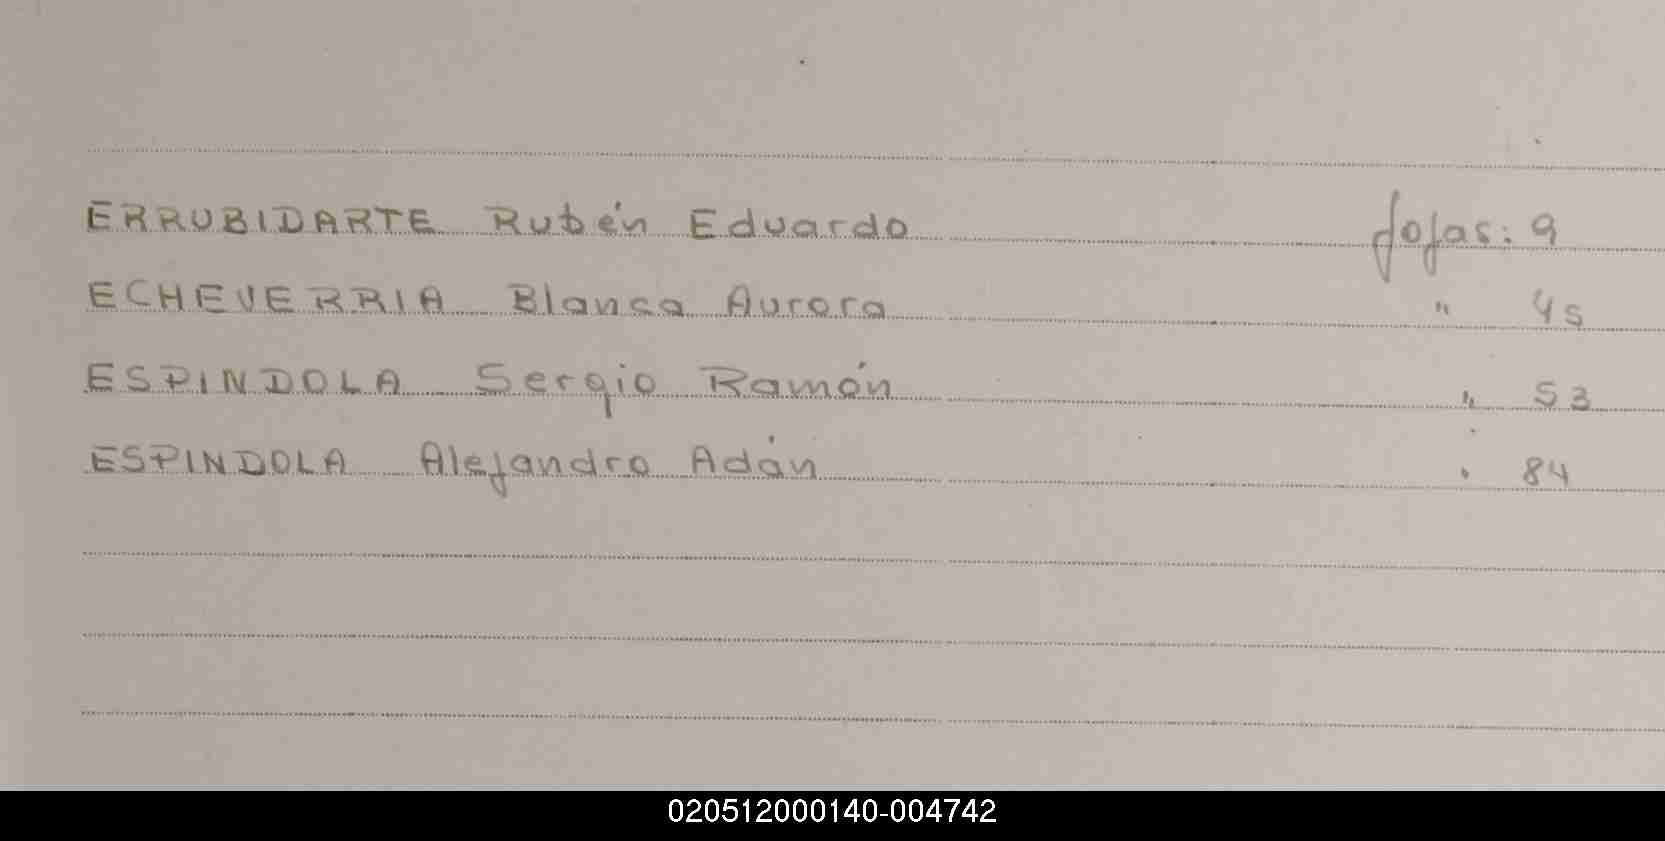 ERRUBIDARTE Rubén Eduardo fojas: 9
ECHEVERRIA Blanca Aurora " 45
ESPINDOLA Sergio Ramón " 53
ESPINDOLA Alejandro Adán " 84
020512000140-004742